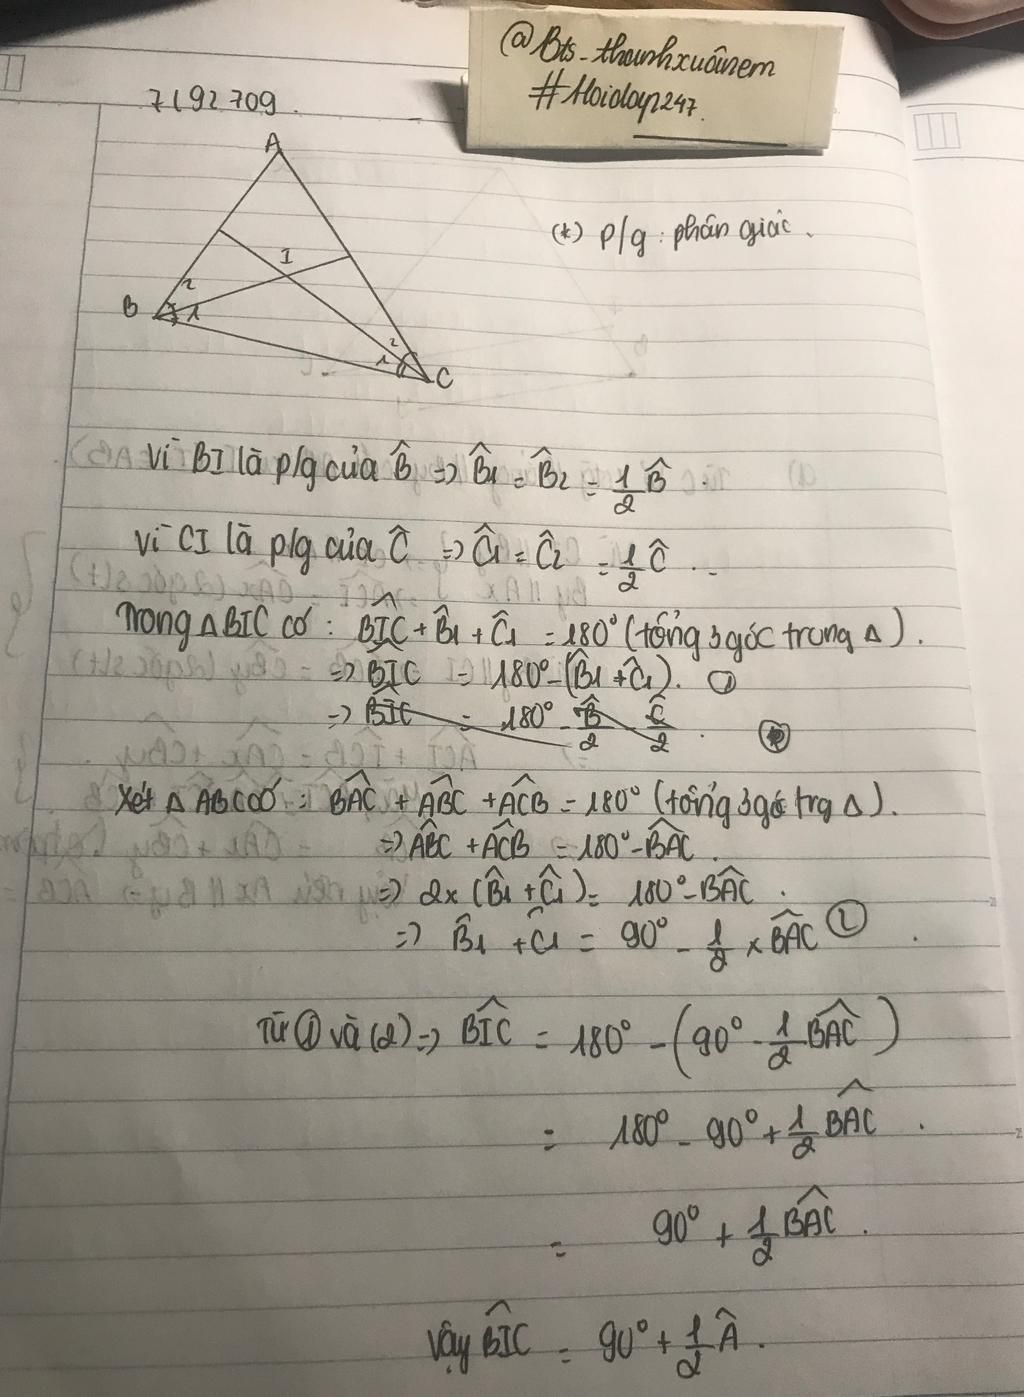 @Bts_thanhxuânem
#Hoidap247.
7192709
A
(*) p/g : phân giác.
I
2
B
1
2
1
C
Vì BI là p/g của B̂ => B̂1 = B̂2 = 1/2 B̂
Vì CI là p/g của Ĉ => Ĉ1 = Ĉ2 = 1/2 Ĉ
Trong △BIC có : BIC + B̂1 + Ĉ1 = 180° (tổng 3 góc trong △).
=> BIC = 180° - (B̂1 + Ĉ1). ①
=> BIC = 180° - B̂/2 Ĉ/2 .
Xét △ ABC có : BAC + ABC + ACB = 180° (tổng 3 góc trg △).
=> ABC + ACB = 180° - BAC.
=> 2x (B̂1 + Ĉ1) = 180° - BAC.
=> B̂1 + Ĉ1 = 90° - 1/2 x BAC ②
Từ ① và (2) => BIC = 180° - (90° - 1/2 BAC)
= 180° - 90° + 1/2 BAC .
= 90° + 1/2 BAC .
Vậy BIC = 90° + 1/2 Â .